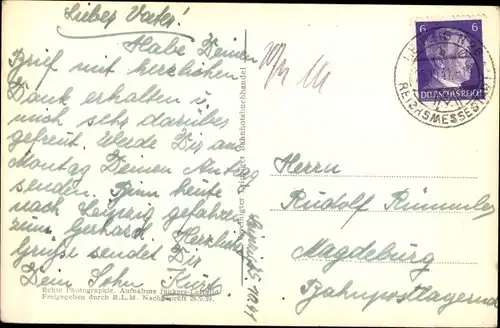 Lieber Vater!
Habe Deinen
Brief mit herzlichen
Dank erhalten u.
mich sehr darüber
gefreut. Werde Dir am
Montag Deinen Anzug
senden. Bin heute
nach Leipzig gefahren
zum Gerhard. Herzliche
Grüße sendet Dir
Dein Sohn Kurt.
Echte Photographie. Aufnahme Junkers-Luftbild
Freigegeben durch R.L.M.
Leipziger Bahnhofsbuchhandel
6 6
DEUTSCHES REICH
LEIPZIG
REICHSMESSESTADT
Herrn
Rudolf Rümmler
Magdeburg
Bahnpostlagernd